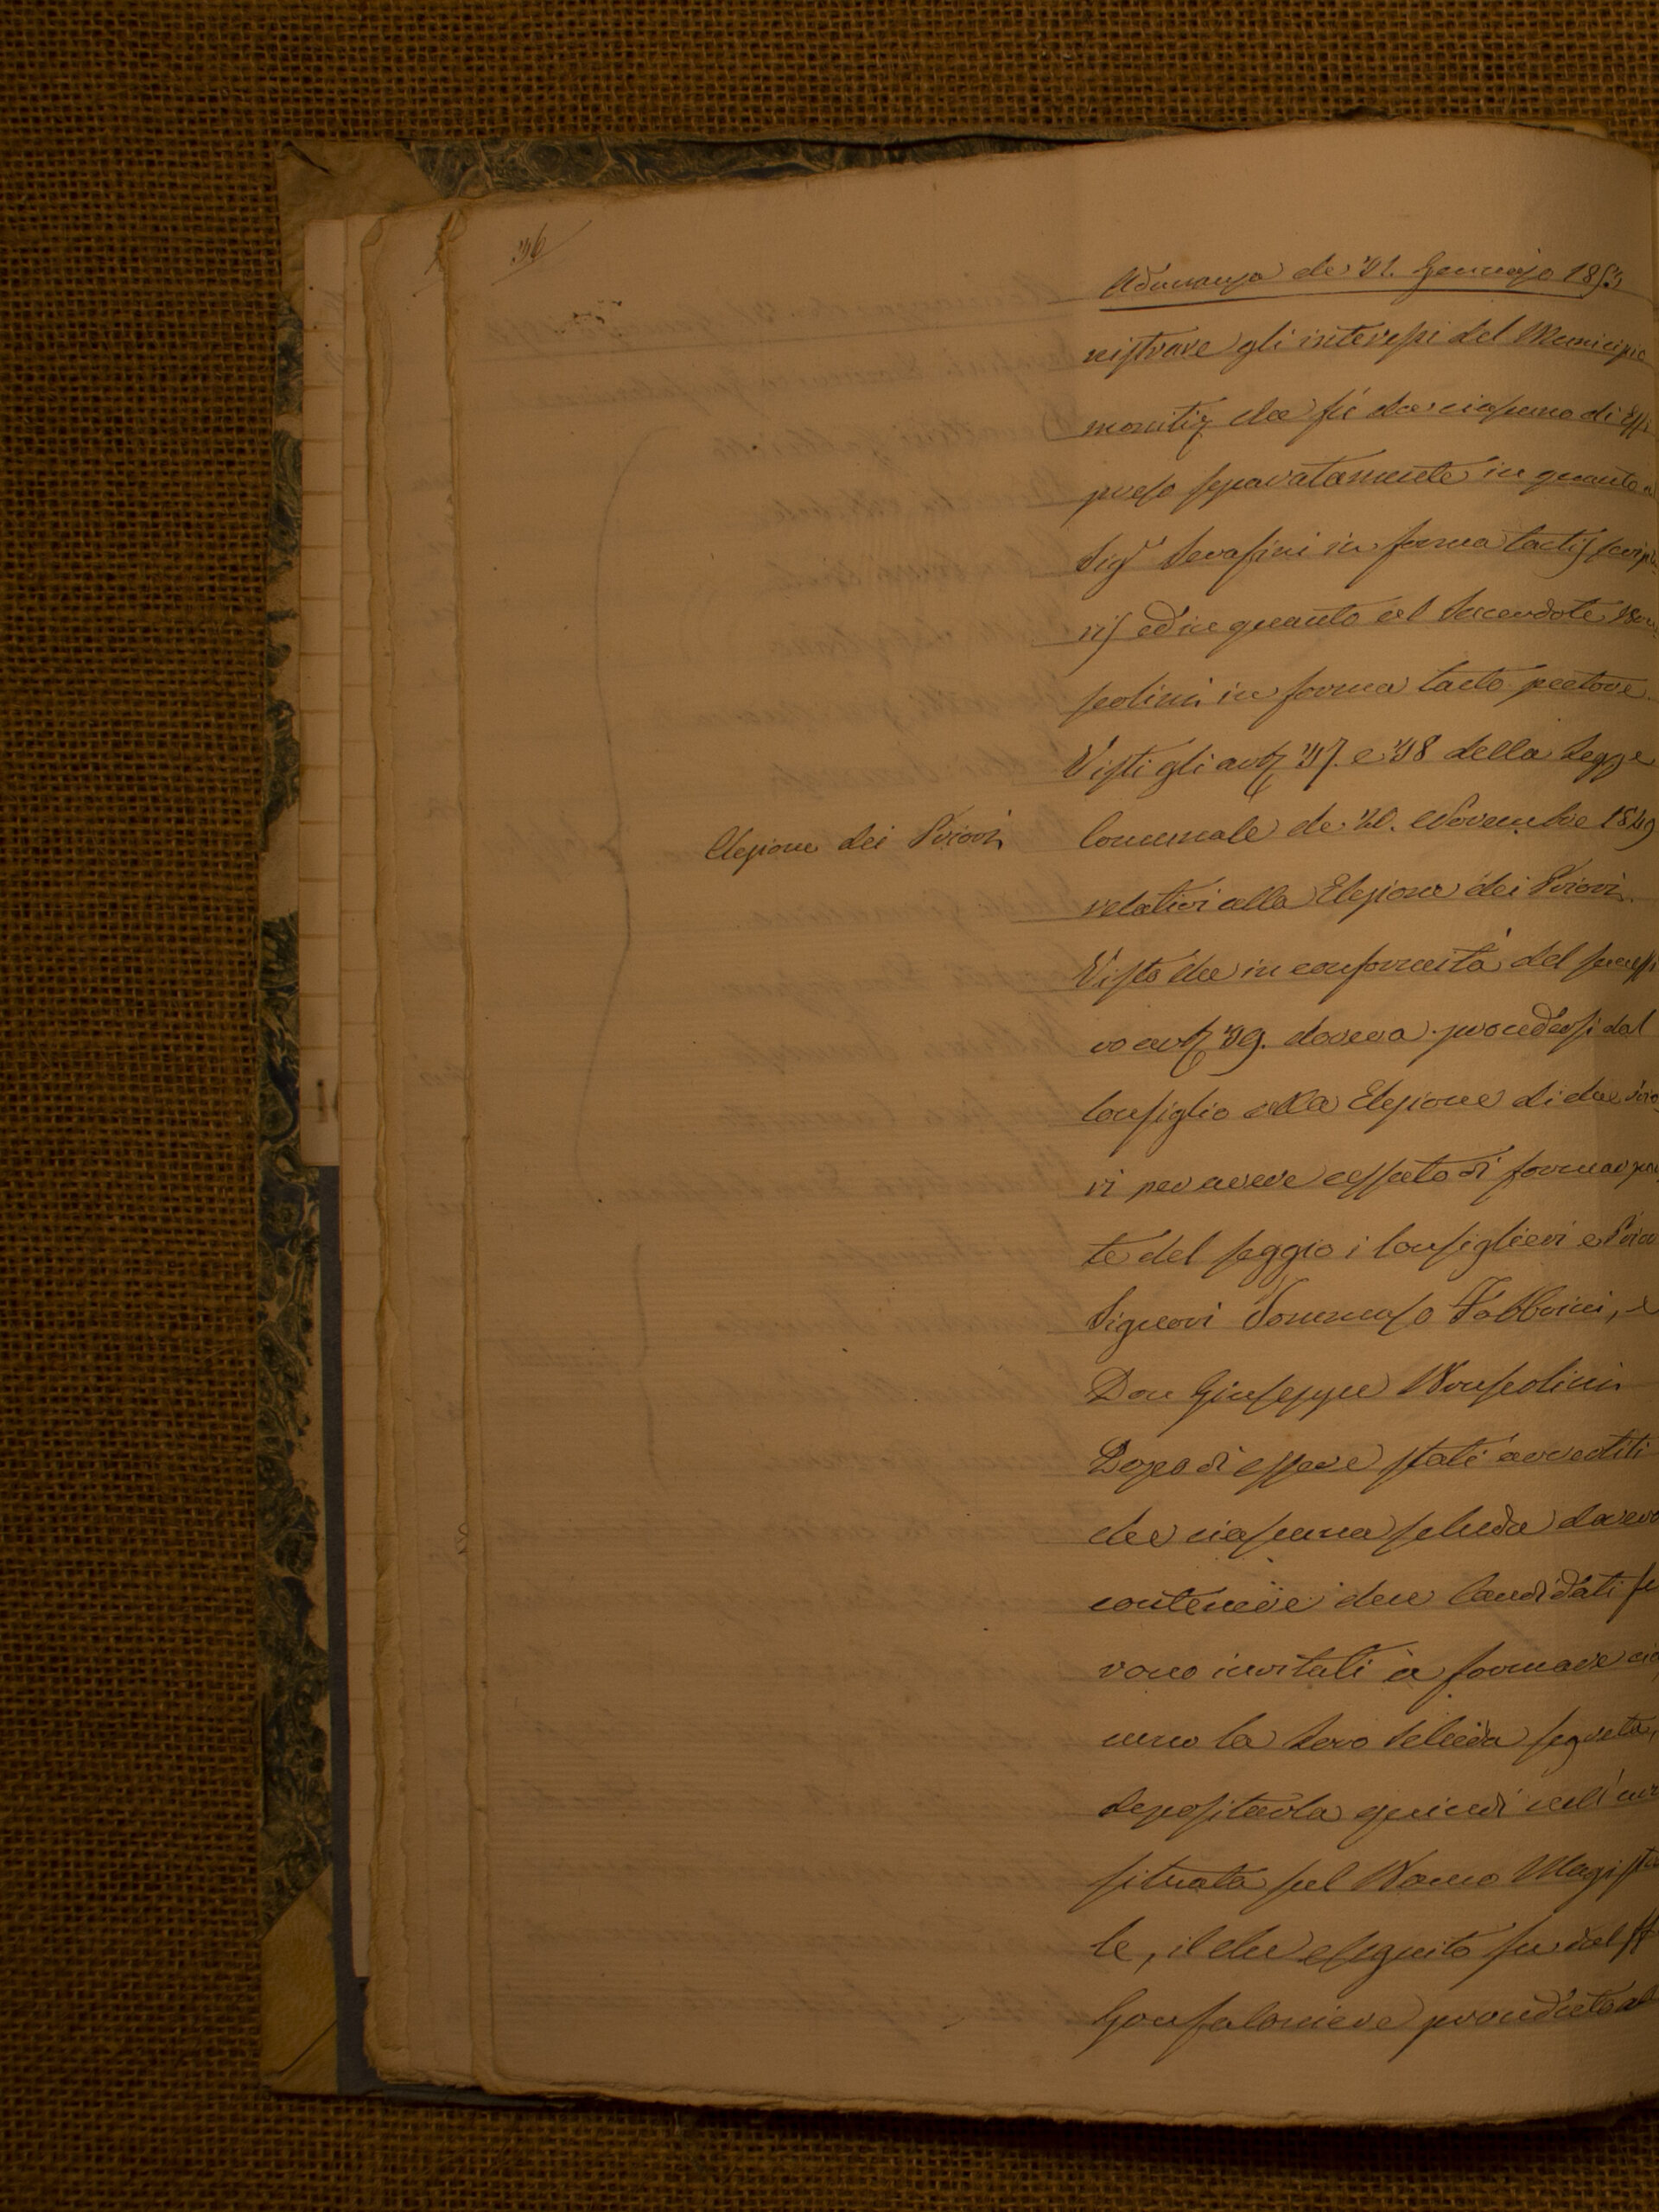 36
Adunanza de' 31. Gennajo 1853
nistrare gli interessi del Municipio
monitiz che fù da ciascuno di Essi
preso separatamente in quanto al
Sigr Serafini in forma tactis scriptu
ris ed in quanto al Sacerdote Bon
solini in forma tacto pectore.
Visti gli artz 37. e 38 della Legge
Elezione dei Priori
Comunale de' 20. Novembre 1849
relativi alla Elezione dei Priori.
Visto che in conformità del successi
vo artz 39. doveva procedersi dal
Consiglio alla Elezione di due Prio
ri per avere cessato di formar par
te del seggio i Consiglieri e Priori
Signori Tommaso Fabbrini, e
Don Giuseppe Bonsolini
Dopo di essere stati avvertiti
che ciascuna scheda doveva
contenere due Candidati fu
rono invitati a formare cias
cuno la loro Scheda segreta,
depositarla quindi nell'urna
situata sul Banco Magistra
le, il che eseguito fu dal
Gonfaloniere proceduto al